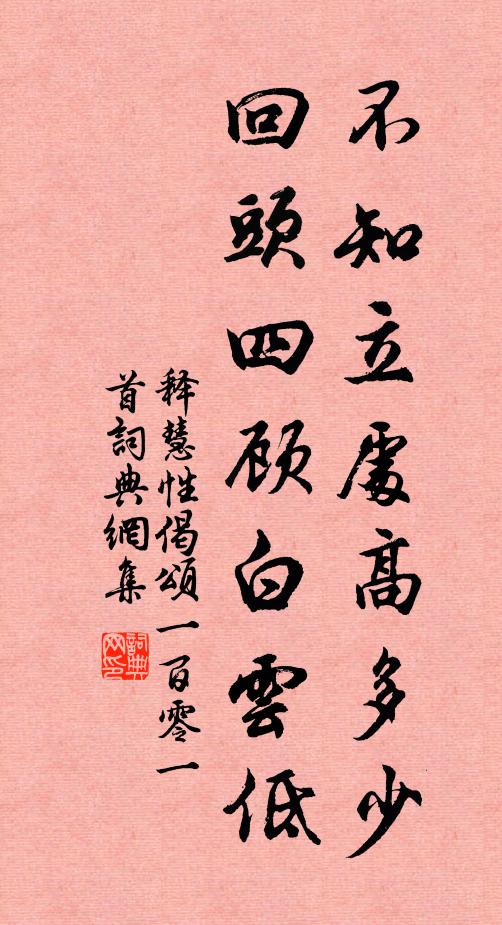 不知立處高多少
回頭四顾白雲低
释慧性偈頌一百零一
首詞典網集
詞典
网印